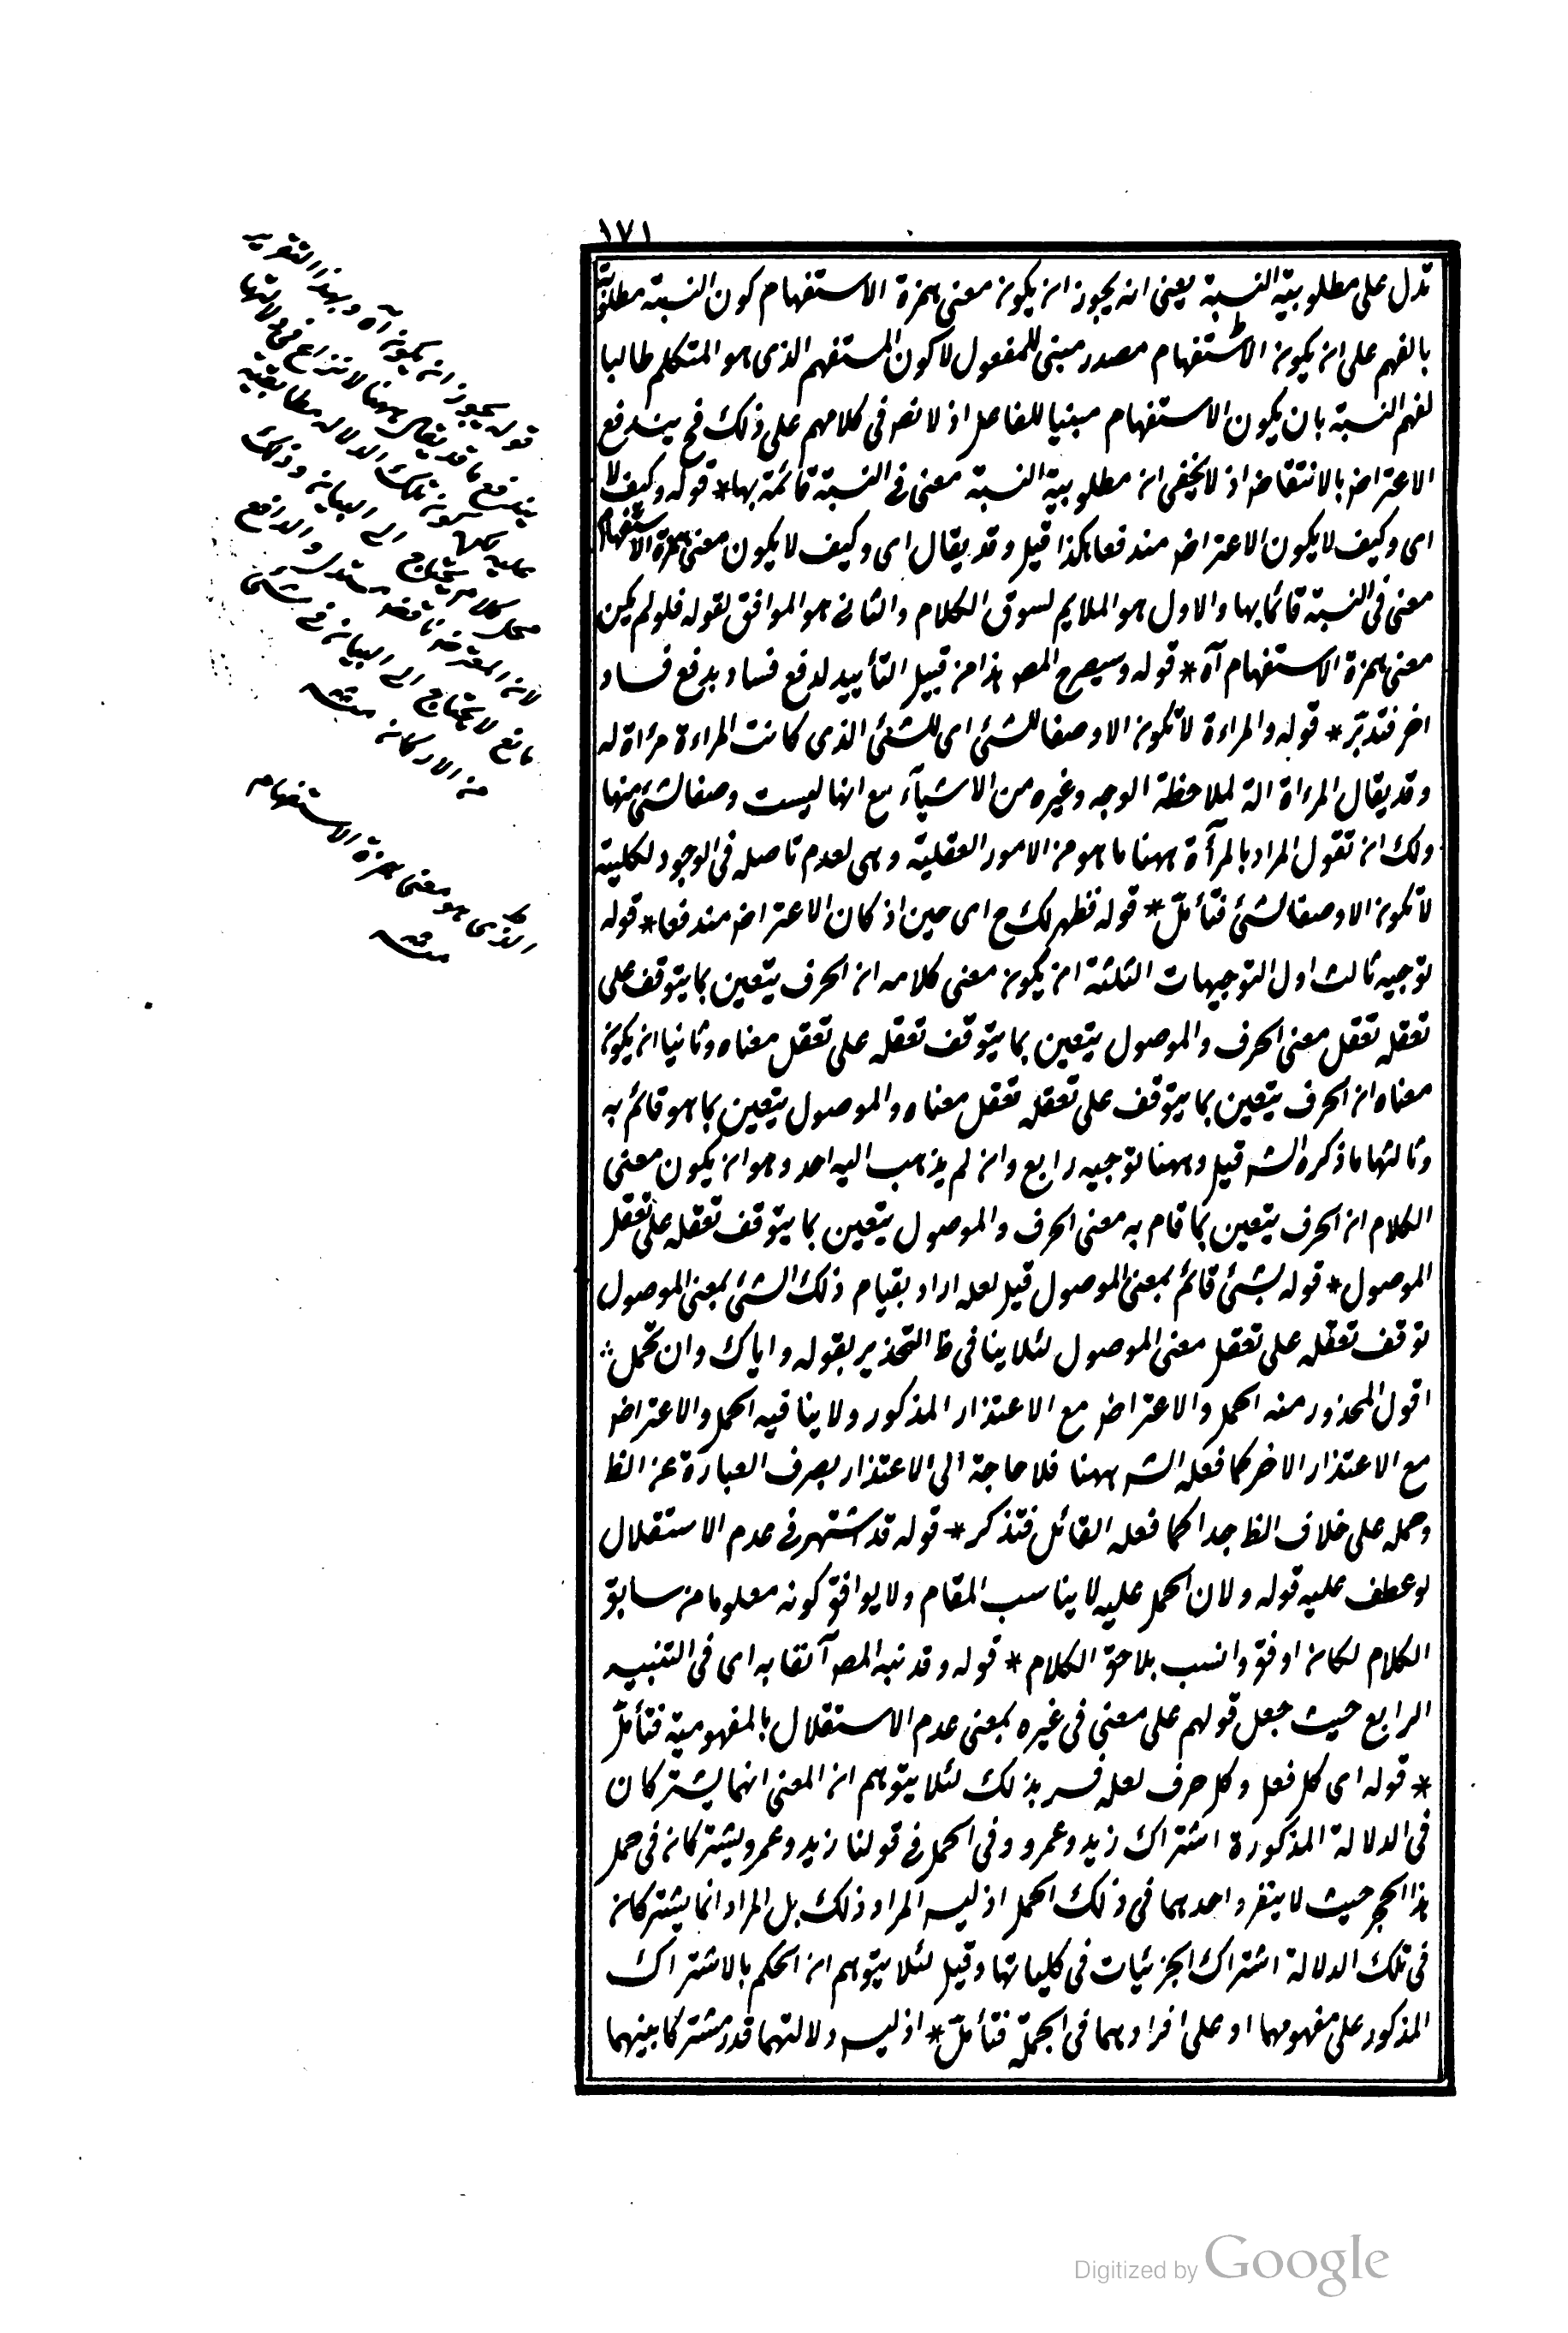 ١٧١
تدل على مطلوبية النسبة يعنى انه يجوز ان يكون معنى همزة الاستفهام كون النسبة مطلوبة
بالفهم على ان يكون الاستفهام مصدر مبنى للمفعول لا كون المستفهم الذى هو المتكلم طالبا
لفهم النسبة بان يكون الاستفهام مبنيا للفاعل اذ لا نص فى كلامهم على ذلك فح يندفع
الاعتراض بالانتقاض اذ لا يخفى ان مطلوبية النسبة معنى فى النسبة قائمة بها * قوله وكيف لا
اى وكيف لا يكون الاعتراض مندفعا هكذا قيل وقد يقال اى وكيف لا يكون معنى همزة الاستفهام
معنى فى النسبة قائما بها والاول هو الملايم لسوق الكلام والثانى هو الموافق لقوله فلو لم يكن
معنى همزة الاستفهام آه * قوله وسيصرح المص هذا من قبيل التأييد لدفع فساد بدفع فساد
اخر فتدبّر * قوله والمراءة لا تكون الا وصفا للشئ اى للشئ الذى كانت المراءة مرأة له
وقد يقال المراة الة لملاحظة الوجه وغيره من الاشيآء مع انها ليست وصفا لشئ منها
ولك ان تقول المراد بالمرآة ههنا ما هو من الامور العقلية وهى لعدم تاصله فى الوجود لكلية
لا تكون الا وصفا لشئ فتأمّل * قوله فظهر لك ح اى حين اذ كان الاعتراض مندفعا * قوله
توجيه ثالث اول التوجيهات الثلثة ان يكون معنى كلامه ان الحرف يتعين بما يتوقف على
تعقله تعقل معنى الحرف والموصول يتعين بما يتوقف تعقله على تعقل معناه وثانيا ان يكون
معناه ان الحرف يتعين بما يتوقف على تعقله تعقل معناه والموصول يتعين بما هو قائم به
وثالثها ما ذكره الش قيل وههنا توجيه رابع وان لم يذهب اليه احد وهو ان يكون معنى
الكلام ان الحرف يتعين بما قام به معنى الحرف والموصول يتعين بما يتوقف تعقله على تعقل
الموصول * قوله بشئ قائم بمعنى الموصول قيل لعله اراد بقيام ذلك الشئ بمعنى الموصول
توقف تعقله على تعقل معنى الموصول لئلا ينافى ظ التحذير بقوله واياك وان تحمل
اقول المحذور منه الحمل والاعتراض مع الاعتذار المذكور ولا ينافيه الحمل والاعتراض
مع الاعتذار الاخر كما فعله الش ههنا فلا حاجة الى الاعتذار بصرف العبارة عن الظ
وحمله على خلاف الظ جدا كما فعله القائل فتذكر * قوله قد اشتهر فى عدم الاستقلال
لو عطف عليه قوله ولان الحمل عليه لا يناسب المقام ولا يوافق كونه معلوما من سابق
الكلام لكان اوفق وانسب بلاحق الكلام * قوله وقد نبه المص آنفا به اى فى التنبيه
الرابع حيث جعل قولهم على معنى فى غيره بمعنى عدم الاستقلال بالمفهومية فتأمّل
* قوله اى كل فعل وكل حرف لعله فسر بذلك لئلا يتوهم ان المعنى انهما يشتركان
فى الدلالة المذكورة اشتراك زيد وعمرو وفى الحمل فى قولنا زيد وعمرو يشتركان فى حمل
هذا الحجر حيث لا ينفرد احدهما فى ذلك الحمل اذ ليس المراد ذلك بل المراد انما يشتركان
فى تلك الدلالة اشتراك الجزئيات فى كلياتها وقيل لئلا يتوهم ان الحكم بالاشتراك
المذكور على مفهومهما او على افرادهما فى الجملة فتأمّل * اذ ليس دلالتهما قدر مشتركا بينهما
قوله يجوز ان يكون آه وبهذا التقرير
يندفع ما قد يقال ههنا لا نزاع فى دلالتها
عليه لكن كون تلك الدلالة مطابقية
محل كلام يحتاج الى البيان وذلك
لان المعترض ناقض مستدل والدافع
مانع لا يحتاج الى البيان فى شئ
من الاركان منه
الذى هو معنى همزة الاستفهام
منه
Digitized by Google